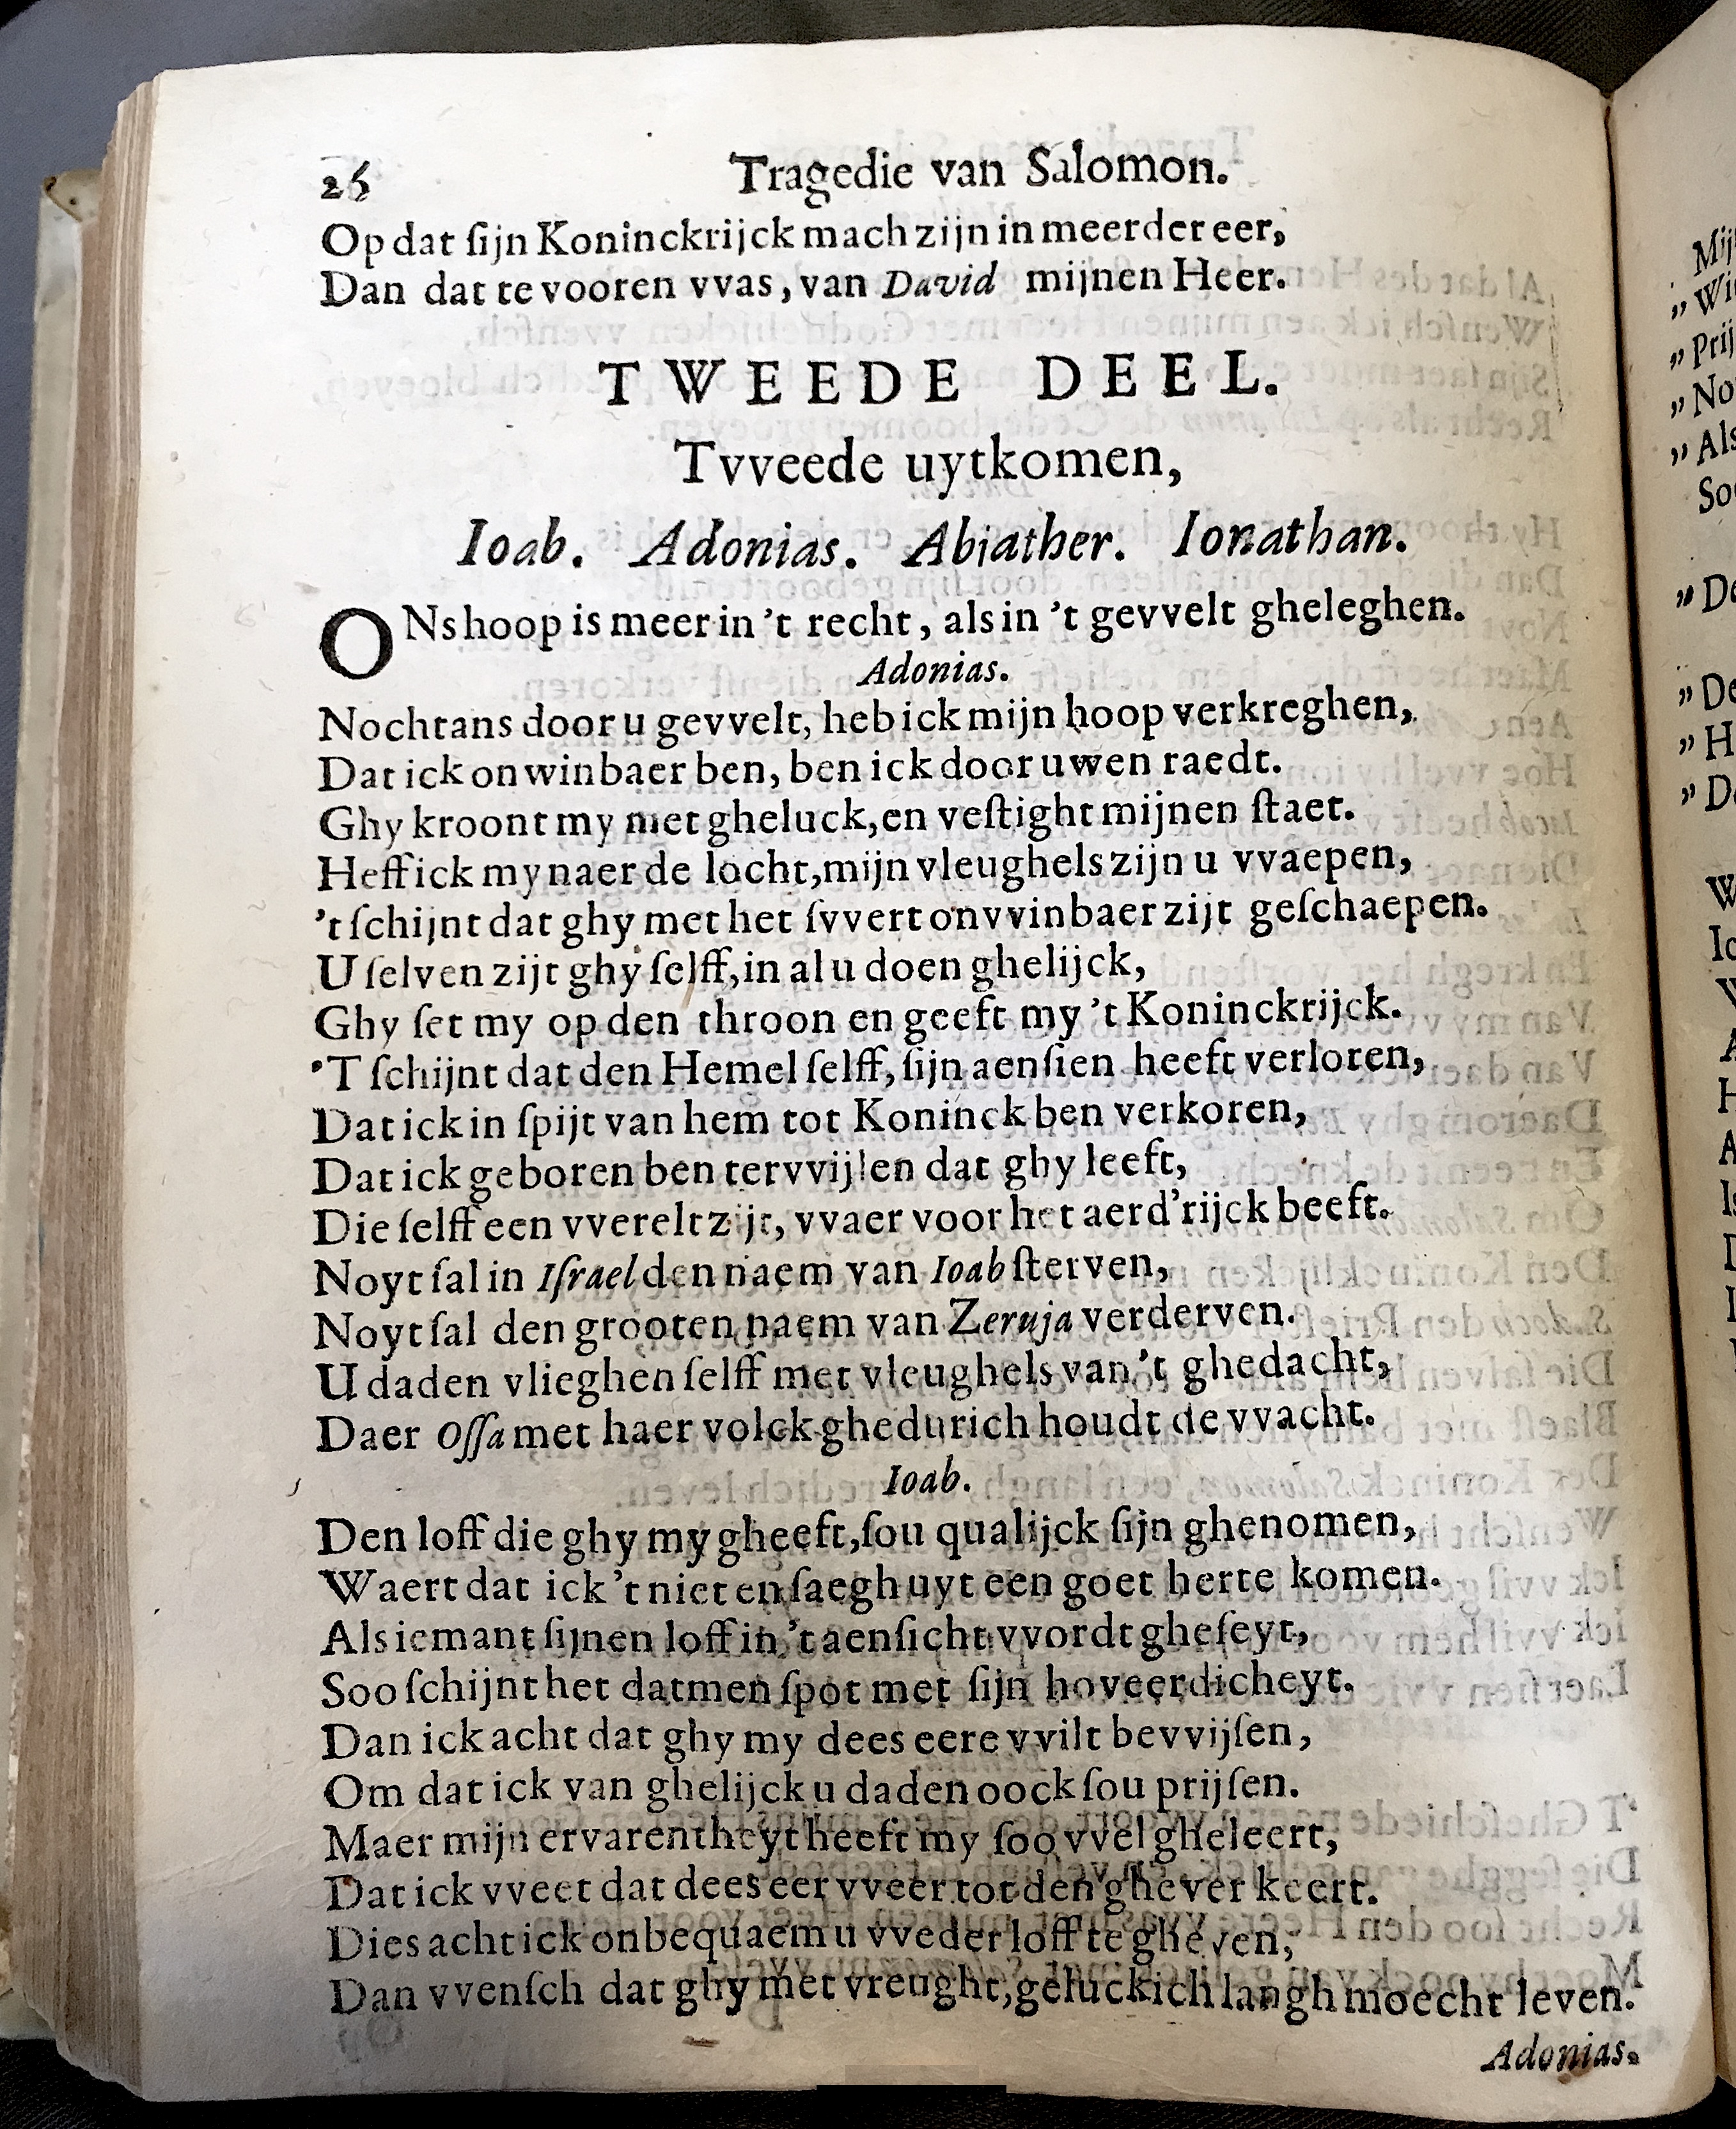 26 Tragedie van Salomon.
Op dat ſijn Koninckrijck mach zijn in meerder eer,
Dan dat te vooren vvas, van David mijnen Heer.
TWEEDE DEEL.
Tvveede uytkomen,
Ioab. Adonias. Abiather. Ionathan.
ONs hoop is meer in 't recht, als in 't gevvelt gheleghen.
Adonias.
Nochtans door u gevvelt, heb ick mijn hoop verkreghen,
Dat ick onwinbaer ben, ben ick door uwen raedt.
Ghy kroont my met gheluck, en veſtight mijnen ſtaet.
Heff ick my naer de locht, mijn vleughels zijn u vvaepen,
't ſchijnt dat ghy met het ſvvert onvvinbaer zijt geſchaepen.
U ſelven zijt ghy ſelff, in al u doen ghelijck,
Ghy ſet my op den throon en geeft my 't Koninckrijck.
'T ſchijnt dat den Hemel ſelff, ſijn aenſien heeft verloren,
Dat ick in ſpijt van hem tot Koninck ben verkoren,
Dat ick geboren ben tervvijlen dat ghy leeft,
Die ſelff een vverelt zijt, vvaer voor het aerd'rijck beeft.
Noyt ſal in Iſrael den naem van Ioab ſterven,
Noyt ſal den grooten naem van Zeruja verderven.
U daden vlieghen ſelff met vleughels van 't ghedacht,
Daer Oſſa met haer volck ghedurich houdt de vvacht.
Ioab.
Den loff die ghy my gheeft, ſou qualijck ſijn ghenomen,
Waert dat ick 't niet en ſaegh uyt een goet herte komen.
Als iemant ſijnen loff in 't aenſicht vvordt gheſeyt,
Soo ſchijnt het datmen ſpot met ſijn hoveerdicheyt.
Dan ick acht dat ghy my dees eere vvilt bevvijſen,
Om dat ick van ghelijck u daden oock ſou prijſen.
Maer mijn ervarentheyt heeft my ſoo vvel gheleert,
Dat ick vveet dat dees eer vveer tot den ghever keert.
Dies acht ick onbequaem u vveder loff te gheven,
Dan vvenſch dat ghy met vreught, geluckich langh moecht leven.
Adonias.